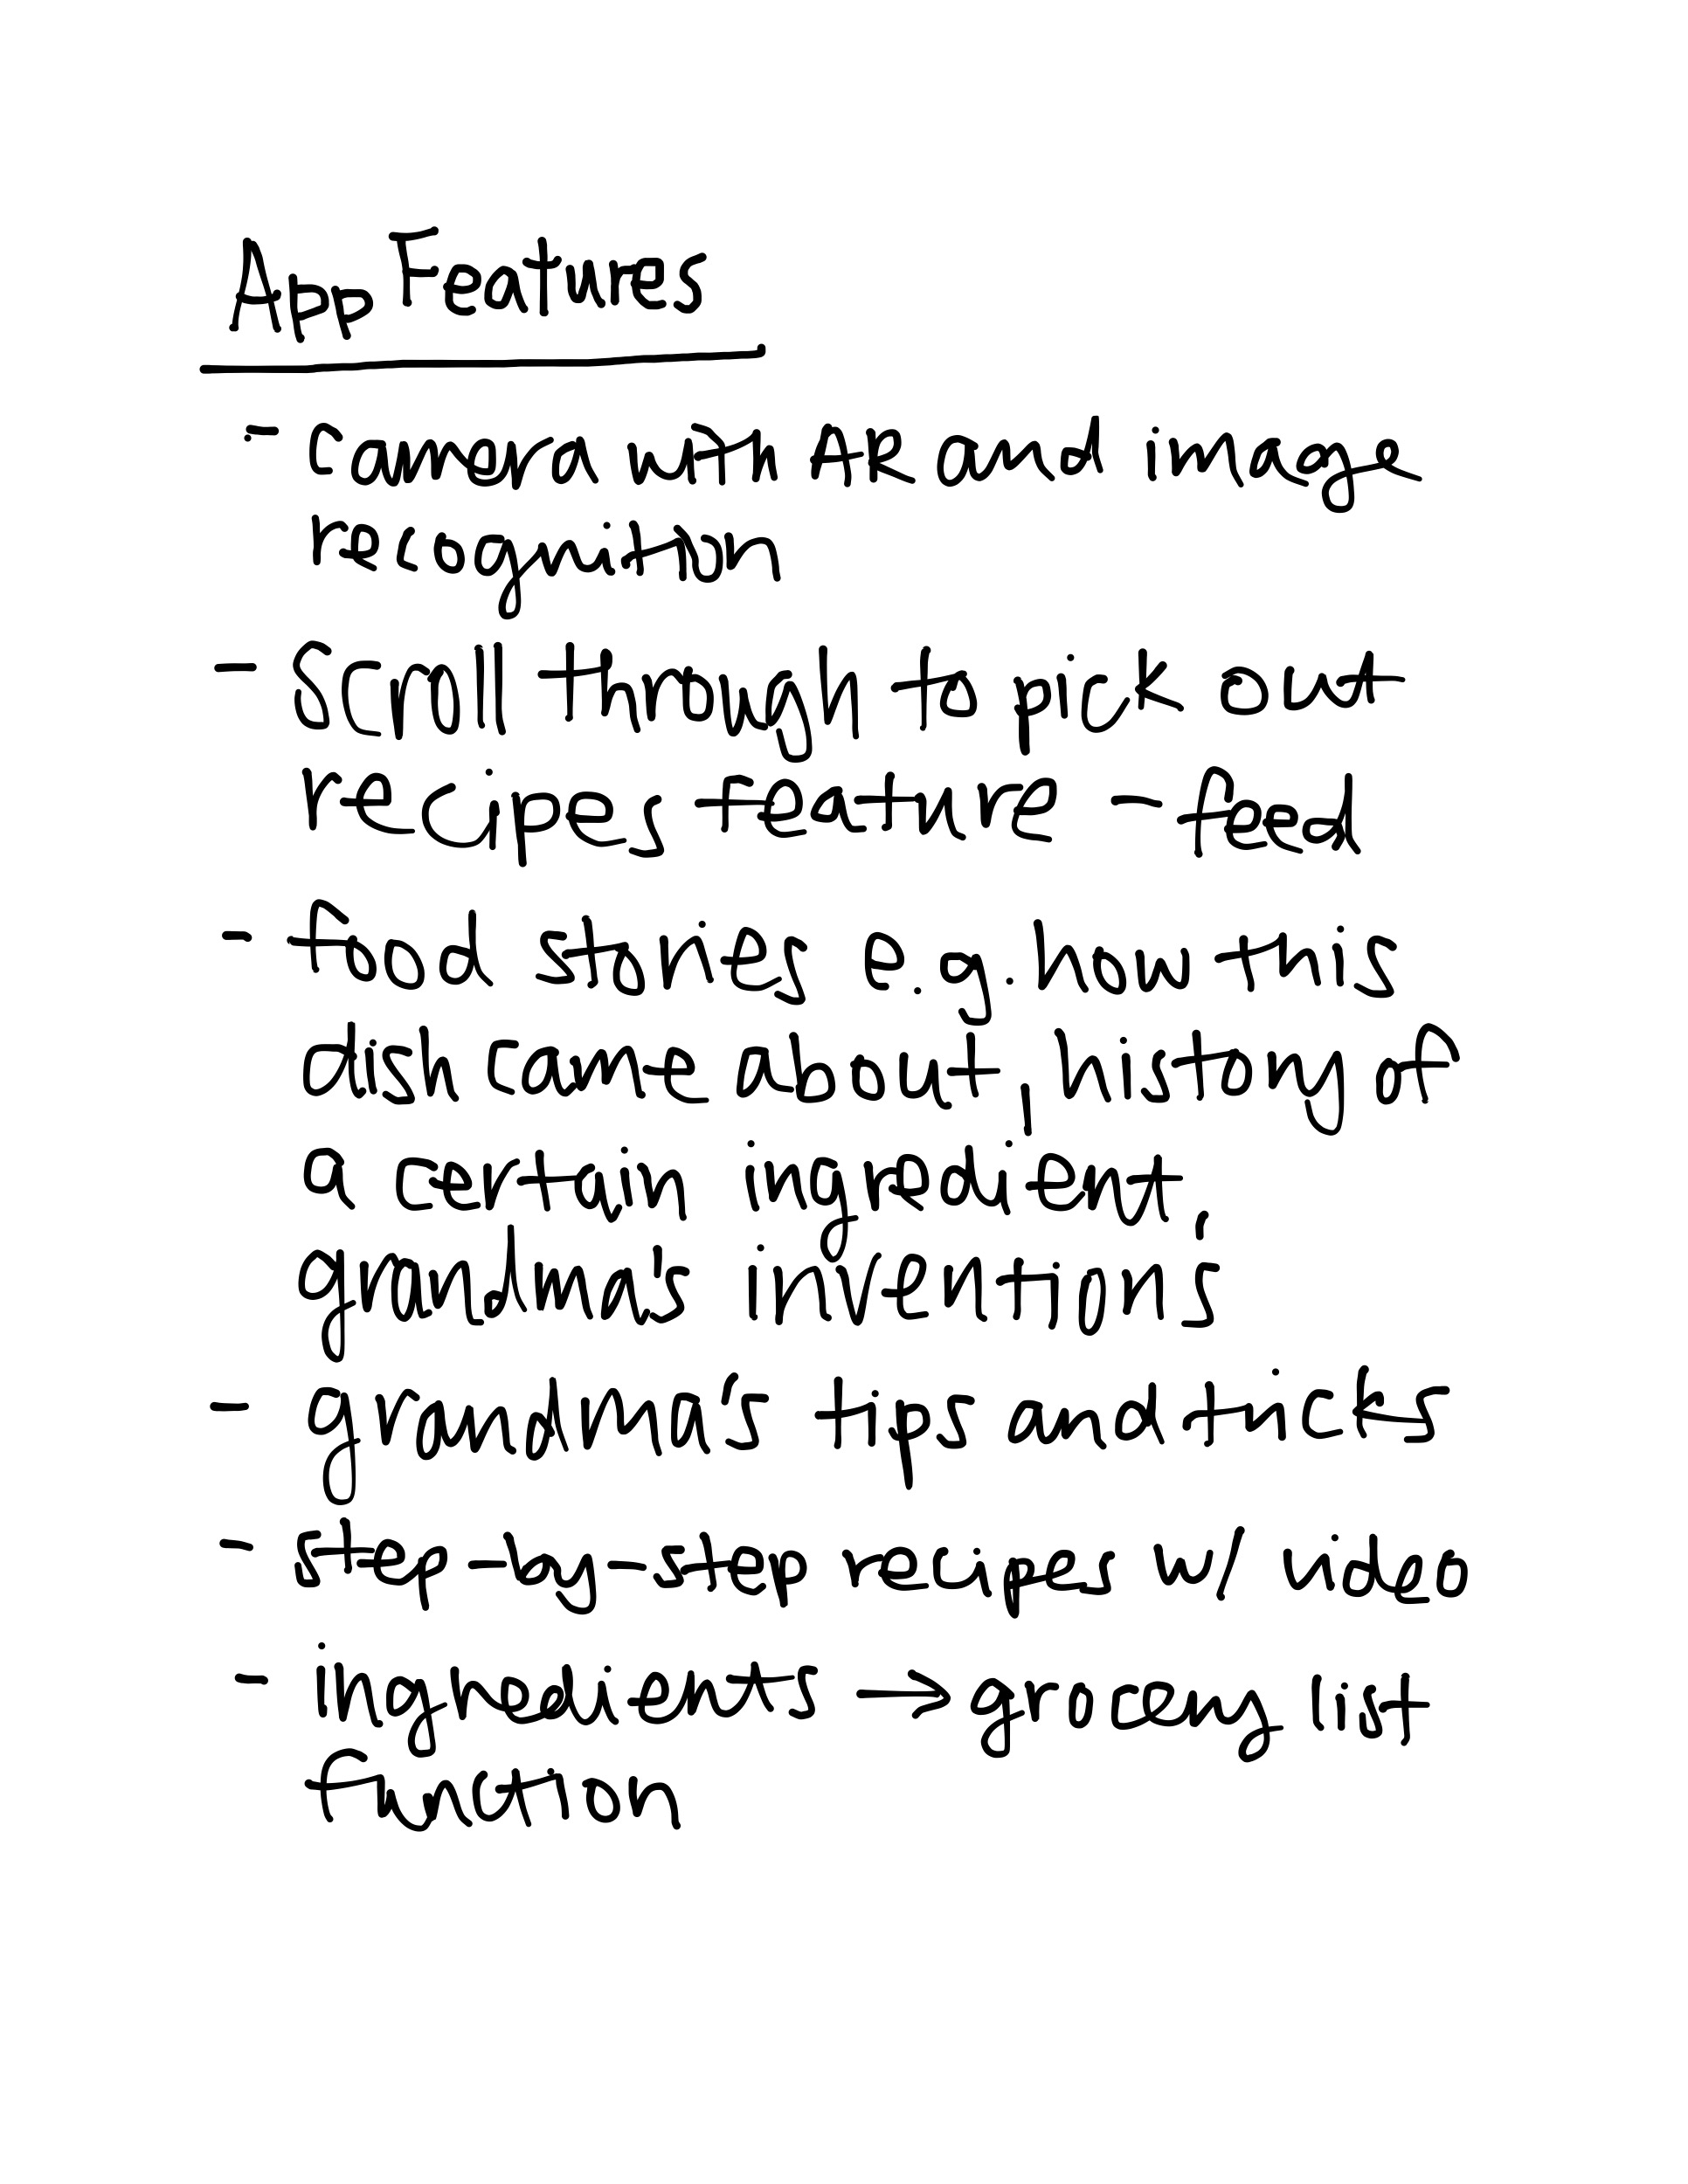 App Features
- camera with AR and image
recognition
- Scroll through to pick out
recipes feature - feed
- food stories e.g. how this
dish came about, history of
a certain ingredient,
grandma's inventions
- grandma's tips and tricks
- step-by-step recipes w/ video
- ingredients → grocery list
function